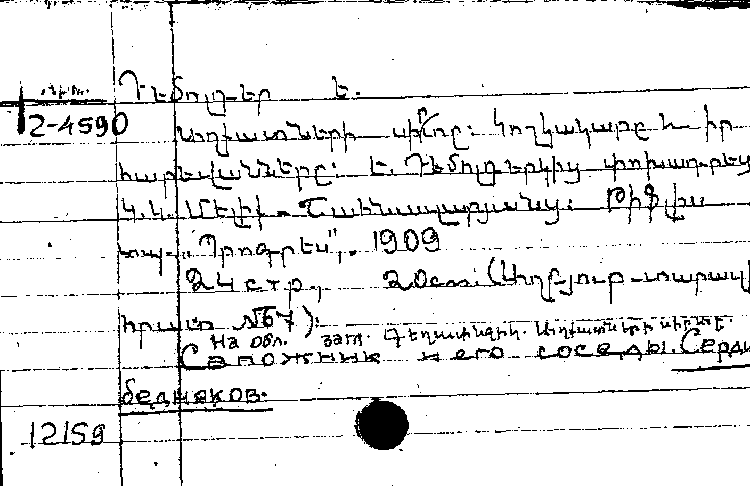 Դեմոլդեր Ե.
2-4590
Աղքատների սիրտը: Կողկակարը և իր
հարևանները: Ե. Դեմոլդերկից փոխադրեց
Կ. Կ. Մելիք-Շահնազարյանց: Թիֆլիս
տպ. "Պրոգրես", 1909
24 стр., 20см. (Աղբյուր-տարազի
հրատ №67):
На обл. загл. Աղքատների սիրտը.
Сапожник и его соседы. Сердце
бедняков.
12159